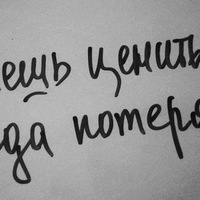 ешь ценить
гда потеря